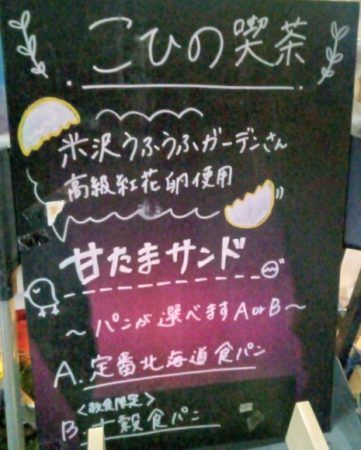 こひの喫茶
米沢うふうふガーデンさん
高級紅花卵使用
甘たまサンド
～パンが選べますAorB～
A. 定番北海道食パン
＜数食限定＞
B. 穀食パン